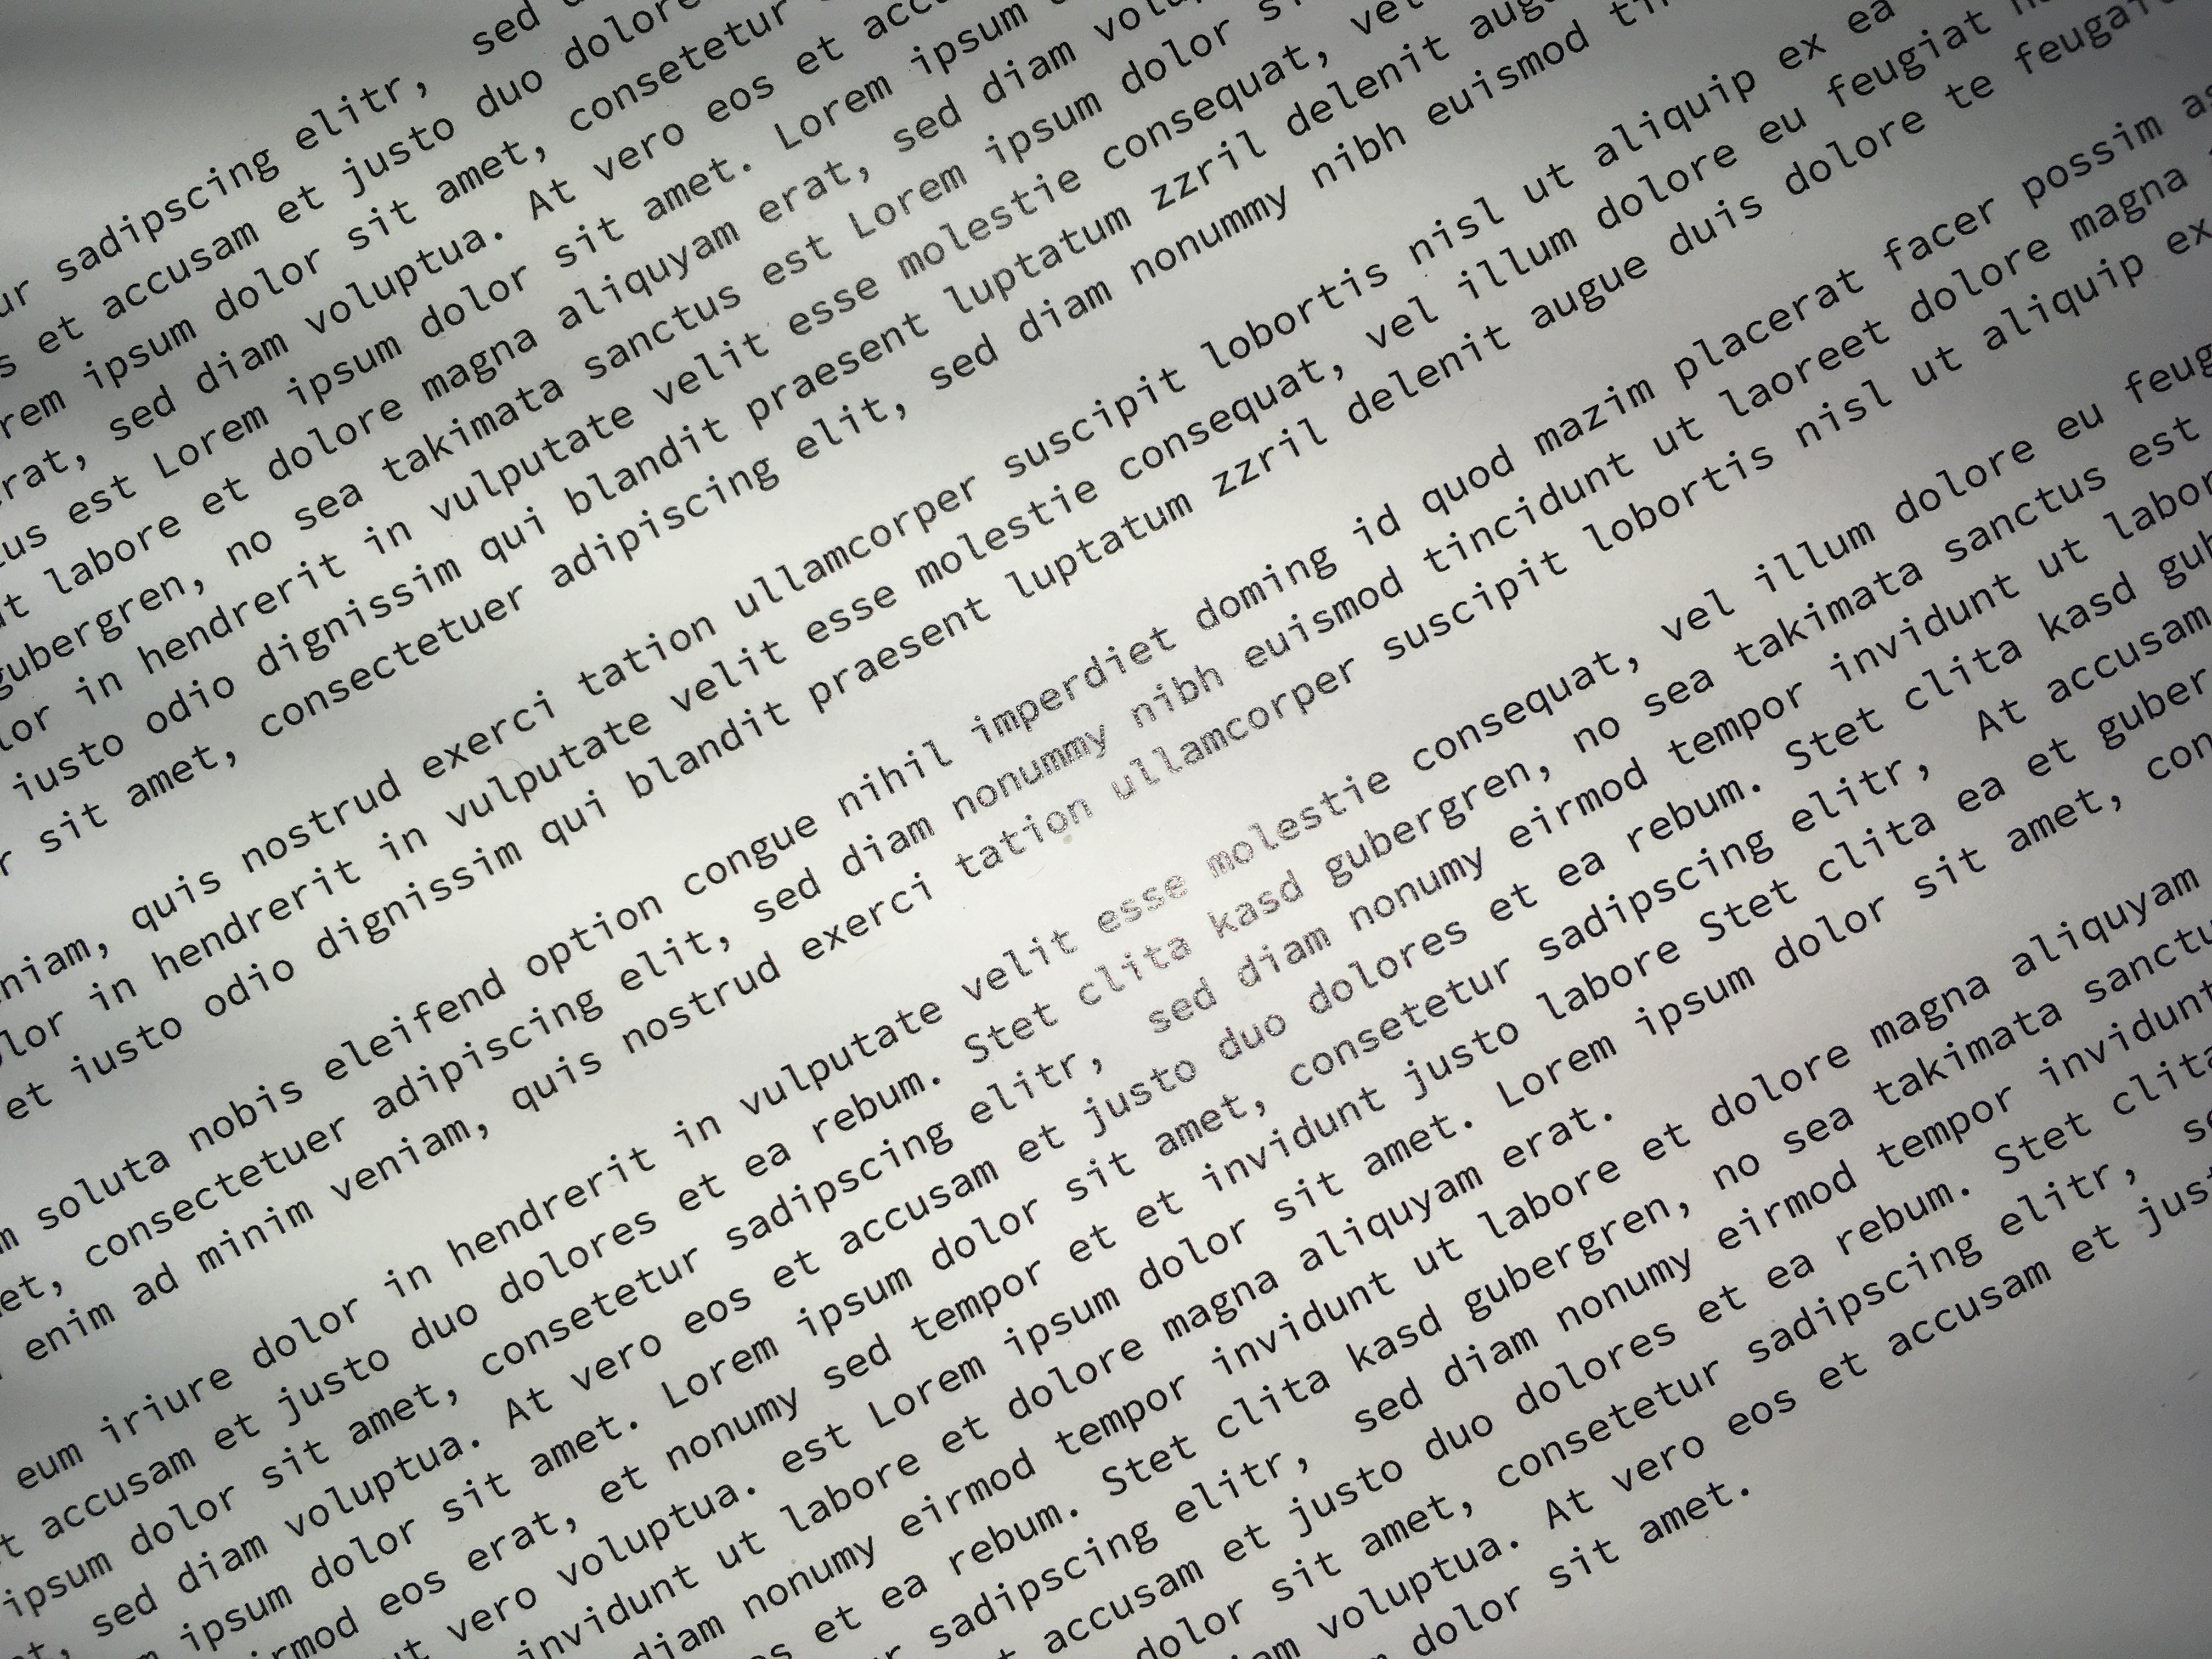 ur sadipscing elitr,  sed
s et accusam et justo duo dolore
rem ipsum dolor sit amet, consetetur
rat, sed diam voluptua. At vero eos et acc
tus est Lorem ipsum dolor sit amet. Lorem ipsum
ut labore et dolore magna aliquyam erat, sed diam volu
gubergren, no sea takimata sanctus est Lorem ipsum dolor s
lor in hendrerit in vulputate velit esse molestie consequat, vel
iusto odio dignissim qui blandit praesent luptatum zzril delenit aug
r sit amet, consectetuer adipiscing elit, sed diam nonummy nibh euismod
niam, quis nostrud exerci tation ullamcorper suscipit lobortis nisl ut aliquip ex ea
lor in hendrerit in vulputate velit esse molestie consequat, vel illum dolore eu feugiat
et iusto odio dignissim qui blandit praesent luptatum zzril delenit augue duis dolore te feugait
m soluta nobis eleifend option congue nihil imperdiet doming id quod mazim placerat facer possim as
et, consectetuer adipiscing elit, sed diam nonummy nibh euismod tincidunt ut laoreet dolore magna
enim ad minim veniam, quis nostrud exerci tation ullamcorper suscipit lobortis nisl ut aliquip ex
eum iriure dolor in hendrerit in vulputate velit esse molestie consequat, vel illum dolore eu feug
t accusam et justo duo dolores et ea rebum. Stet clita kasd gubergren, no sea takimata sanctus est
ipsum dolor sit amet, consetetur sadipscing elitr,  sed diam nonumy eirmod tempor invidunt ut labor
t, sed diam voluptua. At vero eos et accusam et justo duo dolores et ea rebum. Stet clita kasd gub
m ipsum dolor sit amet. Lorem ipsum dolor sit amet, consetetur sadipscing elitr,  At accusam
irmod eos erat, et nonumy sed tempor et et invidunt justo labore Stet clita ea et guber
ut vero voluptua. est Lorem ipsum dolor sit amet. Lorem ipsum dolor sit amet, con
invidunt ut labore et dolore magna aliquyam erat.
diam nonumy eirmod tempor invidunt ut labore et dolore magna aliquyam
s et ea rebum. Stet clita kasd gubergren, no sea takimata sanctu
r sadipscing elitr,  sed diam nonumy eirmod tempor invidunt
t accusam et justo duo dolores et ea rebum. Stet clita
dolor sit amet, consetetur sadipscing elitr,  se
am voluptua. At vero eos et accusam et just
dolor sit amet.